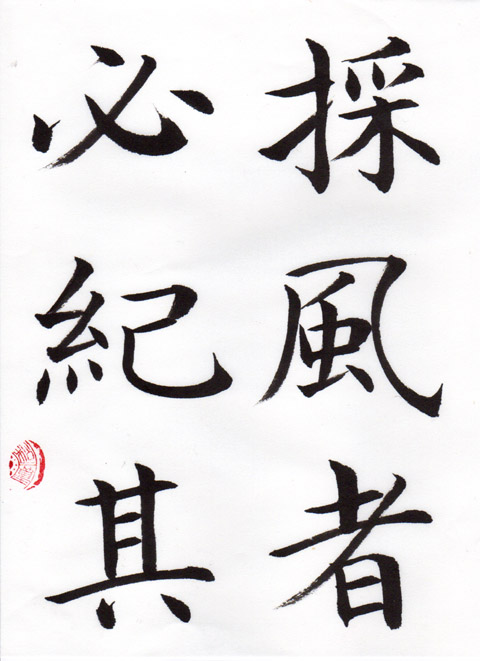 採風者
必紀其